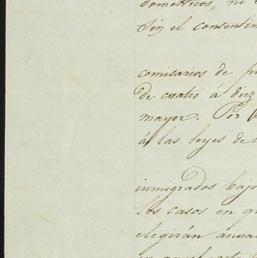 domésticos, ni
Sin el consentim
comisarios de p
de cuatro á diez
mayor. Por
á las leyes de
inmigrados bajo
los casos en q
elegirán anua